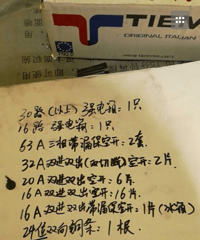 TIEM
ORIGINAL ITALIAN
30路(以上)强电箱:1只
16路 强电箱:1只
63A 三相带漏保空开:2套
32A 双进双出(双切断)空开:2片
20A 双进双出空开:6片
16A 双进双出空开:16片
16A 双进双出带漏保空开:1片(冰箱)
24位双向铜条:1根